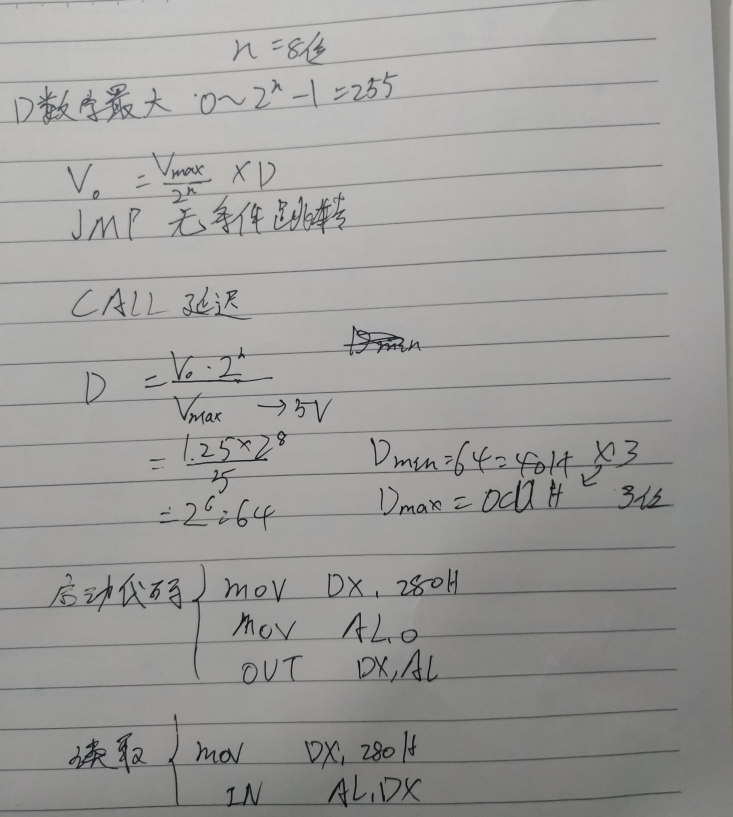 n = 8位
D数字最大 0~2ⁿ-1=255
V₀ = Vmax/2ⁿ × D
JMP 无条件跳转
CALL 延迟
D = V₀·2ⁿ/Vmax →5V
= 1.25×2⁸/5
= 2⁶=64
Dmin=64=40H ×3
Dmax = 0C0H 3位
启动代码 { mov DX, 280H
mov AL, 0
OUT DX, AL
读取 { mov DX, 280H
IN AL, DX